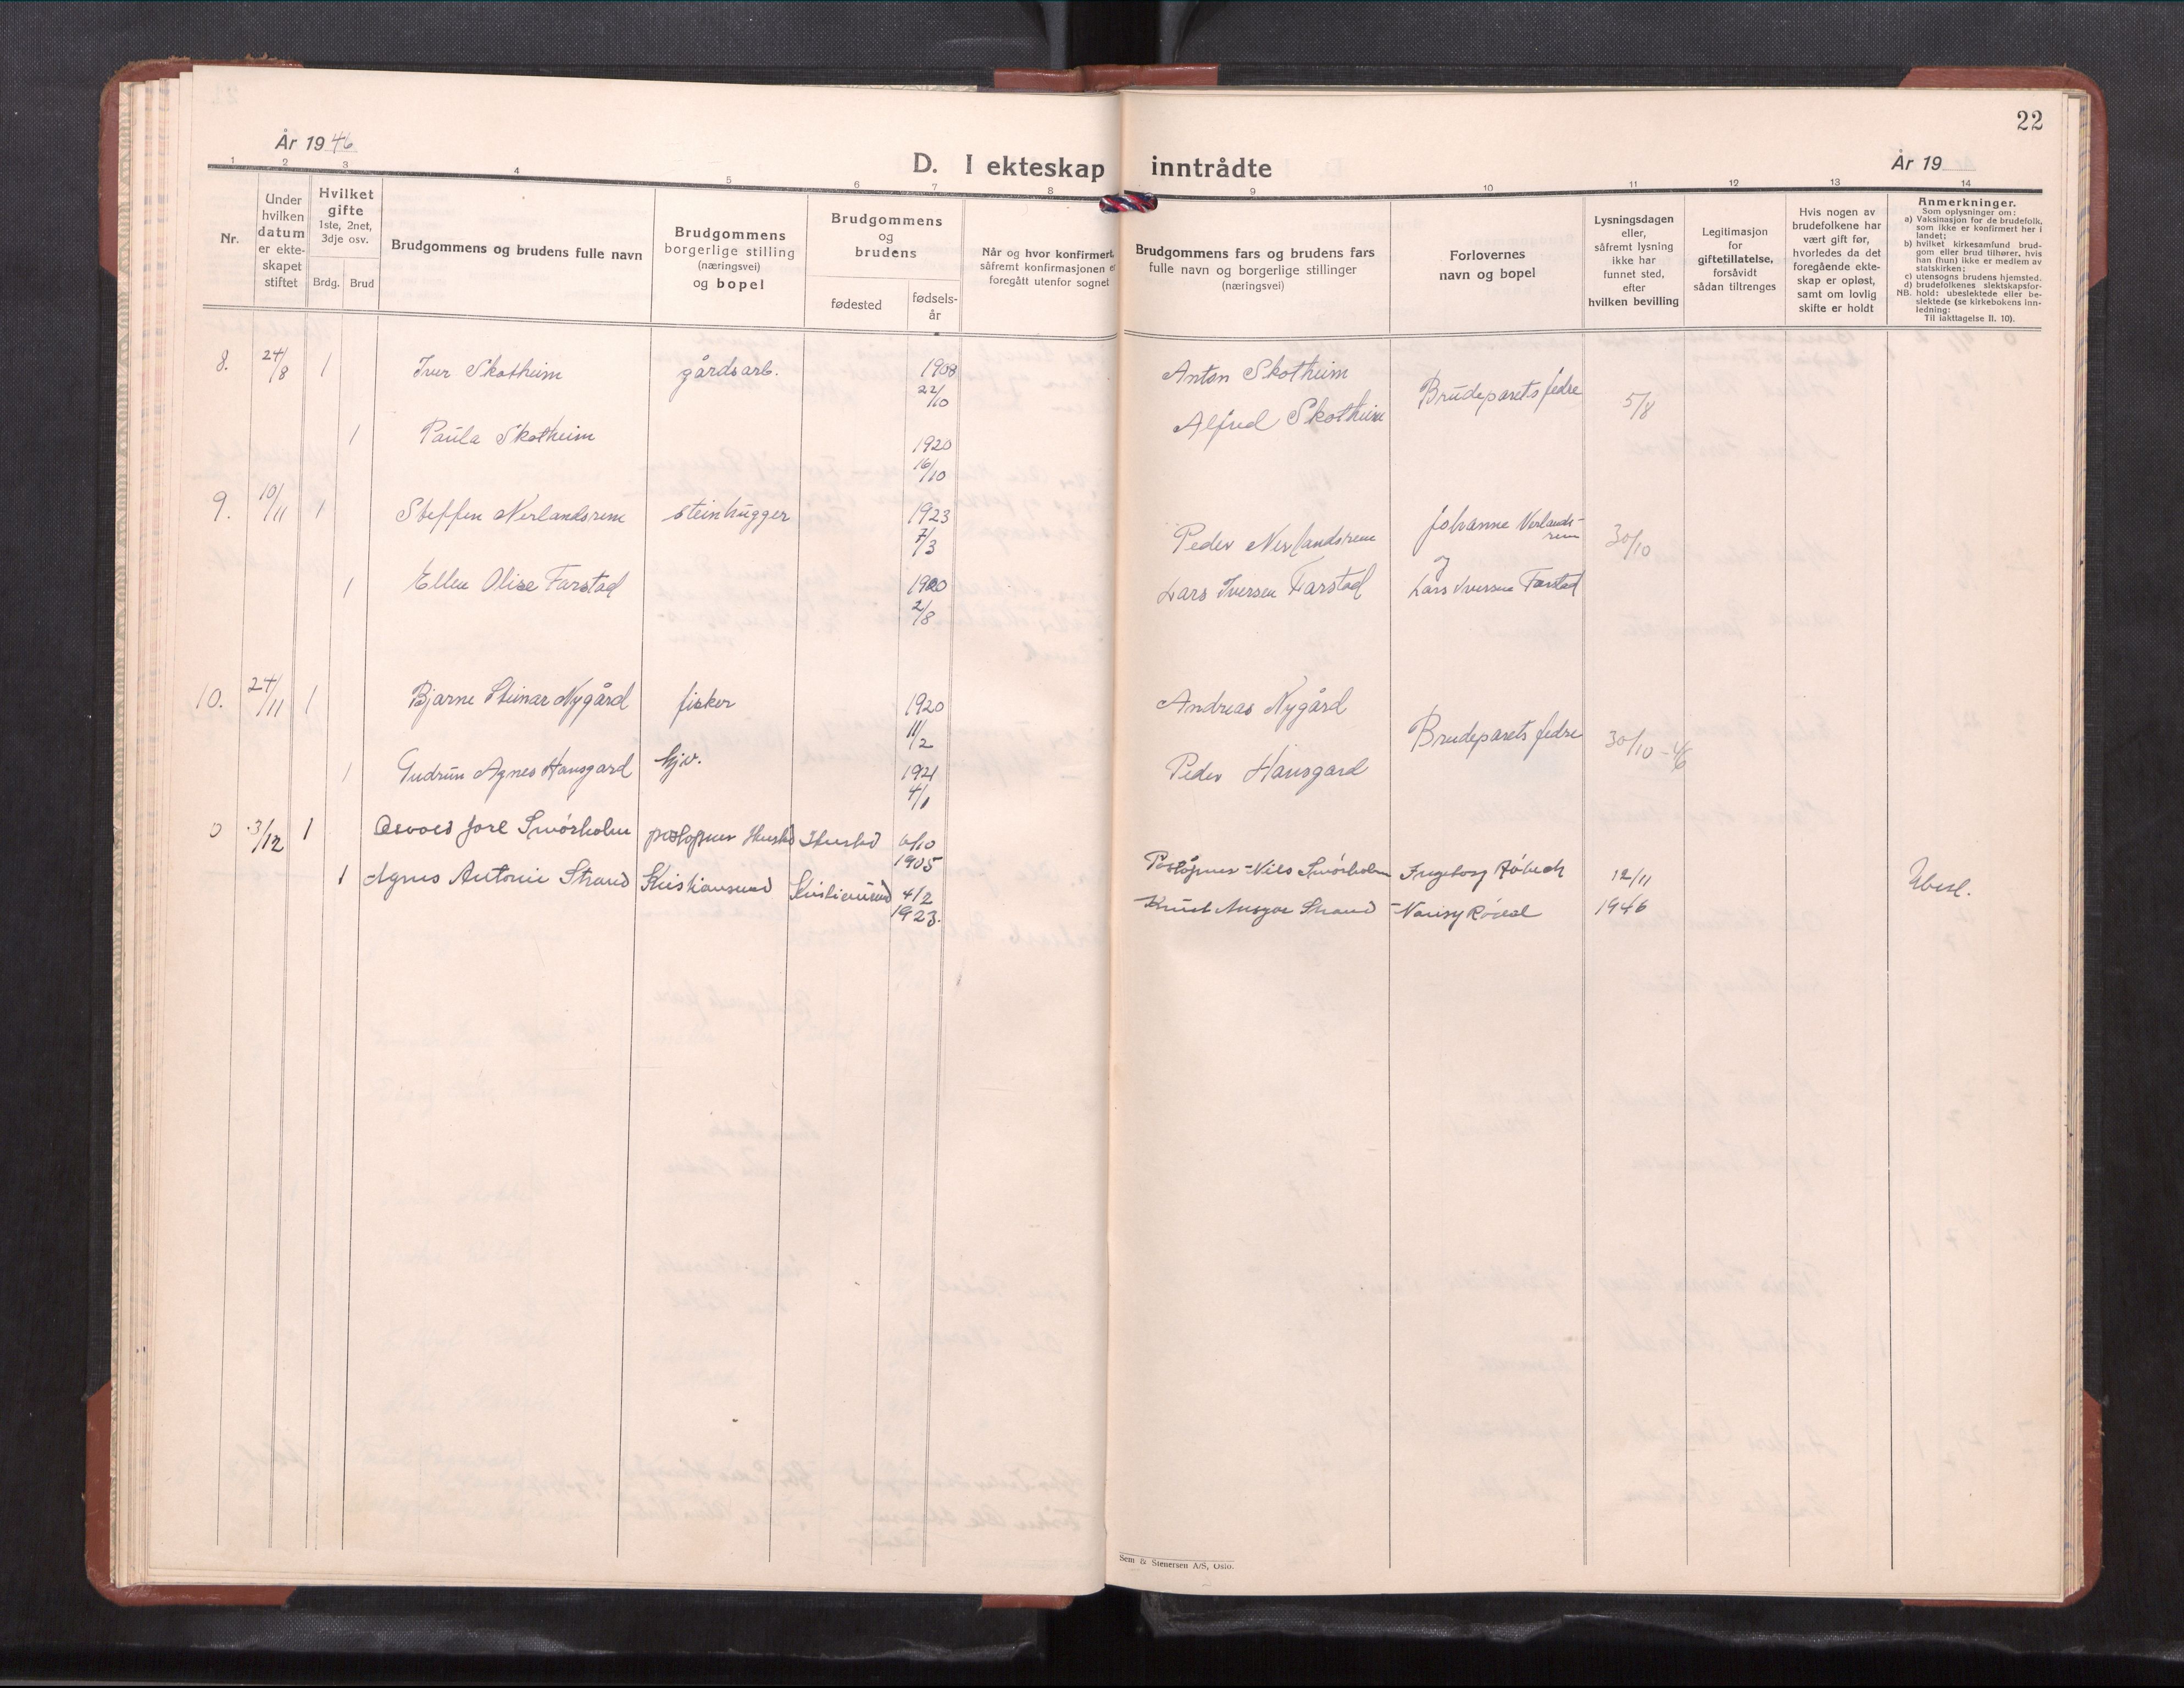 22
År 1946
D. I ekteskap inntrådte
År 19
1 2 3 4 5 6 7 8 9 10 11 12 13 14
Nr.
Under
hvilken
datum
er ekte-
skapet
stiftet
Hvilket
gifte
1ste, 2net,
3dje osv.
Brdg. Brud
Brudgommens og brudens fulle navn
Brudgommens
borgerlige stilling
(næringsvei)
og bopel
Brudgommens
og
brudens
fødested
fødsels-
år
Når og hvor konfirmert,
såfremt konfirmasjonen er
foregått utenfor sognet
Brudgommens fars og brudens fars
fulle navn og borgerlige stillinger
(næringsvei)
Forlovernes
navn og bopel
Lysningsdagen
eller,
såfremt lysning
ikke har
funnet sted,
efter
hvilken bevilling
Legitimasjon
for
giftetillatelse,
forsåvidt
sådan tiltrenges
Hvis nogen av
brudefolkene har
vært gift før,
hvorledes da det
foregående ekte-
skap er opløst,
samt om lovlig
skifte er holdt
Anmerkninger.
Som oplysninger om:
a) Vaksinasjon for de brudefolk,
som ikke er konfirmert her i
landet;
b) hvilket kirkesamfund brud-
gom eller brud tilhører, hvis
han (hun) ikke er medlem av
statskirken;
c) utensogns brudens hjemsted.
d) brudefolkenes slektskapsfor-
NB. hold: ubeslektede eller be-
slektede (se kirkebokens inn-
ledning:
Til iakttagelse II. 10).
8. 24/8 1 Iver Skotheim gårdsarb. 1908 Anton Skotheim Brudeparets fedre 5/8
22/10
Alfred Skotheim
1 Paula Skotheim 1920
16/10
9. 10/11 1 Steffen Nerlandsrem steinhugger 1923 Peder Nerlandsrem Johanne Nerlands-
rem 30/10
7/3
og
1 Ellen Olise Farstad 1920 Lars Iversen Farstad Lars Iversen Farstad
2/8
10. 24/11 1 Bjarne Steinar Nygård fisker 1920 Andreas Nygård Brudeparets fedre 30/10 - 46
11/2
1 Gudrun Agnes Hausgard hjv. 1921 Peder Hausgard
4/1
3/12 1 Smørholm Hustad Hustad 6/10
1905 Nils Smørholm Ingeborg 12/11
1 Agnes Antonie Strand Kristiansund Kristiansund 4/2 Ubesl.
1923. Knut Ansgar Strand 1946
Sem & Stenersen A/S, Oslo.